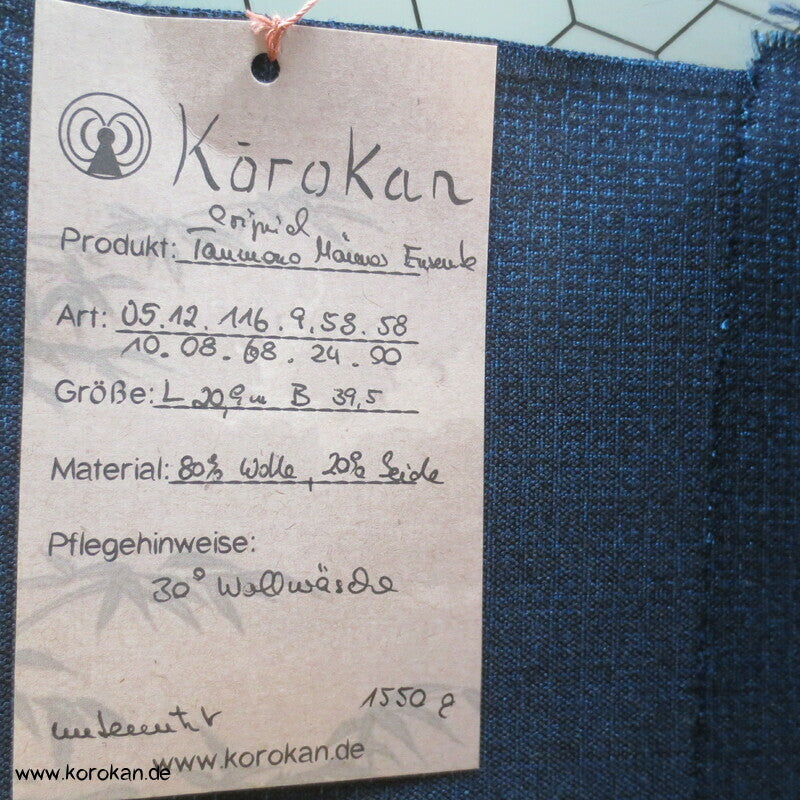 Kōrokan
Original
Produkt: Tanmono Männer Ensemble
Art: 05.12.116.9,58.58
10.08.68.24.90
Größe: L 20,9m B 39,5
Material: 80% Wolle, 20% Seide
Pflegehinweise:
30° Wollwäsche
1550 g
unbenutzt
www.korokan.de
www.korokan.de